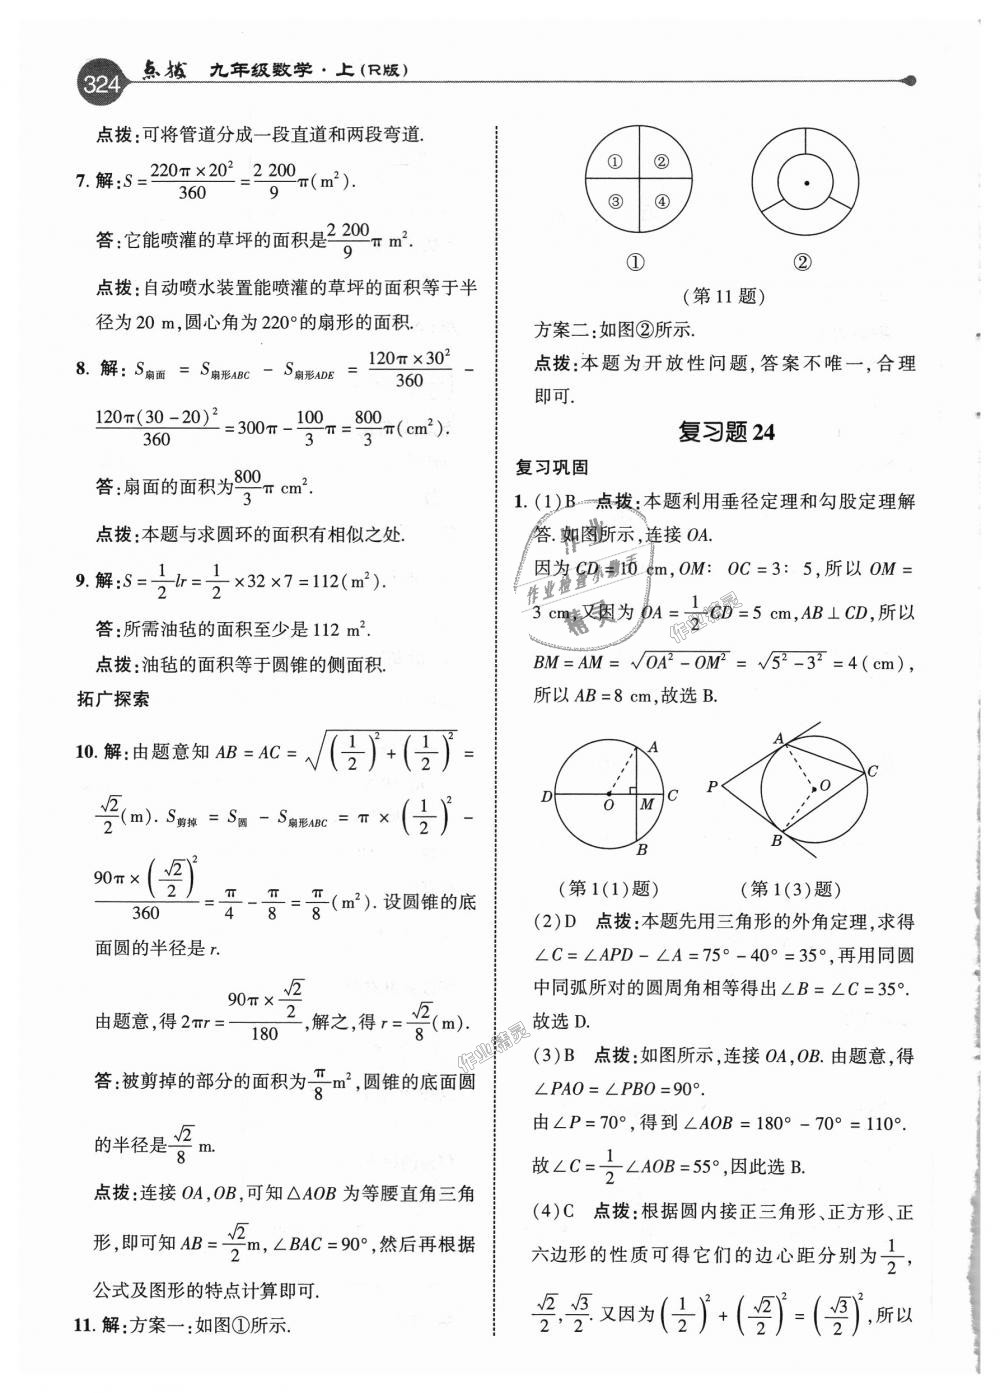 324 点拨 九年级数学·上(R版)
点拨:可将管道分成一段直道和两段弯道.
7. 解:S = 220π×20²/360 = 2 200/9 π(m²).
答:它能喷灌的草坪的面积是 2 200/9 π m².
点拨:自动喷水装置能喷灌的草坪的面积等于半
径为20 m,圆心角为220°的扇形的面积.
8. 解: S扇面 = S扇形ABC − S扇形ADE = 120π×30²/360 −
120π(30−20)²/360 = 300π − 100/3 π = 800/3 π(cm²).
答:扇面的面积为 800/3 π cm².
点拨:本题与求圆环的面积有相似之处.
9. 解:S = 1/2 lr = 1/2 ×32×7 = 112(m²).
答:所需油毡的面积至少是112 m².
点拨:油毡的面积等于圆锥的侧面积.
拓广探索
10. 解:由题意知 AB = AC = √((1/2)² + (1/2)²) =
√2/2 (m). S剪掉 = S圆 − S扇形ABC = π × (1/2)² −
90π×(√2/2)²/360 = π/4 − π/8 = π/8 (m²). 设圆锥的底
面圆的半径是 r.
由题意,得 2πr = 90π×√2/2 / 180 ,解之,得 r = √2/8 (m).
答:被剪掉的部分的面积为 π/8 m²,圆锥的底面圆
的半径是 √2/8 m.
点拨:连接 OA,OB,可知△AOB 为等腰直角三角
形,即可知 AB = √2/2 m,∠BAC = 90°,然后再根据
公式及图形的特点计算即可.
11. 解:方案一:如图①所示.
① ②
③ ④
① ②
(第11题)
方案二:如图②所示.
点拨:本题为开放性问题,答案不唯一,合理
即可.
复习题24
复习巩固
1. (1)B 点拨:本题利用垂径定理和勾股定理解
答.如图所示,连接 OA.
因为 CD = 10 cm,OM∶OC = 3∶5,所以 OM =
3 cm,又因为 OA = 1/2 CD = 5 cm,AB⊥CD,所以
BM = AM = √(OA² − OM²) = √(5² − 3²) = 4(cm),
所以 AB = 8 cm,故选 B.
A
D O M C
B
A
P O C
B
(第1(1)题) (第1(3)题)
(2)D 点拨:本题先用三角形的外角定理,求得
∠C = ∠APD − ∠A = 75° − 40° = 35°,再用同圆
中同弧所对的圆周角相等得出∠B = ∠C = 35°.
故选 D.
(3)B 点拨:如图所示,连接 OA,OB. 由题意,得
∠PAO = ∠PBO = 90°.
由∠P = 70°,得到∠AOB = 180° − 70° = 110°.
故∠C = 1/2 ∠AOB = 55°,因此选 B.
(4)C 点拨:根据圆内接正三角形、正方形、正
六边形的性质可得它们的边心距分别为 1/2 ,
√2/2 , √3/2 . 又因为 (1/2)² + (√2/2)² = (√3/2)² ,所以
作业
作业检查小助手
精灵
作业精灵
作业精灵